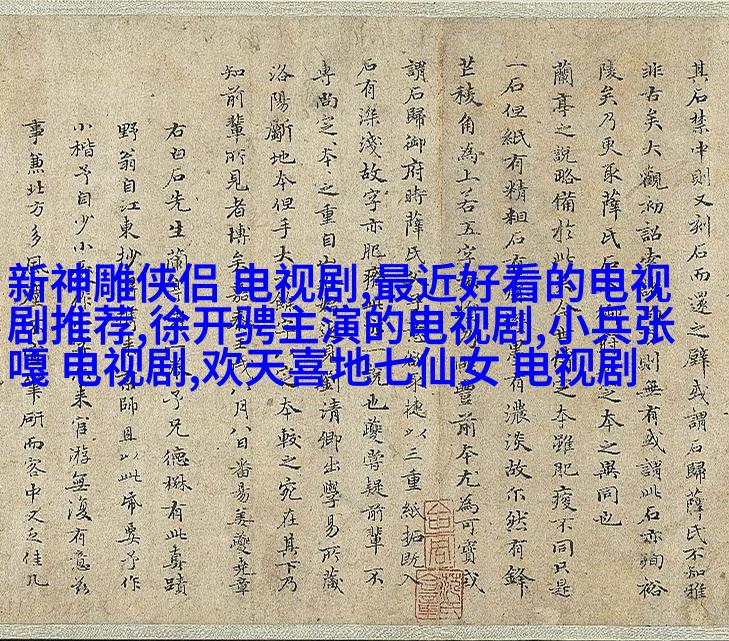 新神雕侠侣 电视剧,最近好看的电视
剧推荐,徐开骋主演的电视剧,小兵张
嘎 电视剧,欢天喜地七仙女 电视剧
其石禁中則又刻石而還之壁或謂石歸薛氏不知雅
非古矣大觀初詔索則無有或謂此石亦殉裕
陵矣乃更取薛氏石之本之異同也
蘭亭之說略備於此本雖肥瘦不同只是
一石但紙有精粗石有有濃淡故尔然有鋒
芒稜角為上若五字豐前本尤為可寶或
謂石歸御府時薛氏捷以三重紙拓既入
石有深淺故字亦肥說也夔嘗疑前輩不
專尚定本之重自劉清卿出學易所藏
洛陽斷地本但手大本較之宛在其下乃
知前輩所見者博矣嘉八月八日番昜姜夔堯章
右白石先生蘭予兄德楙有此真蹟
野翁自江東抄師且以此帋要予作
小楷予自少小来官游無復有意茲
事兼北方多風筆研而容中又乏佳几